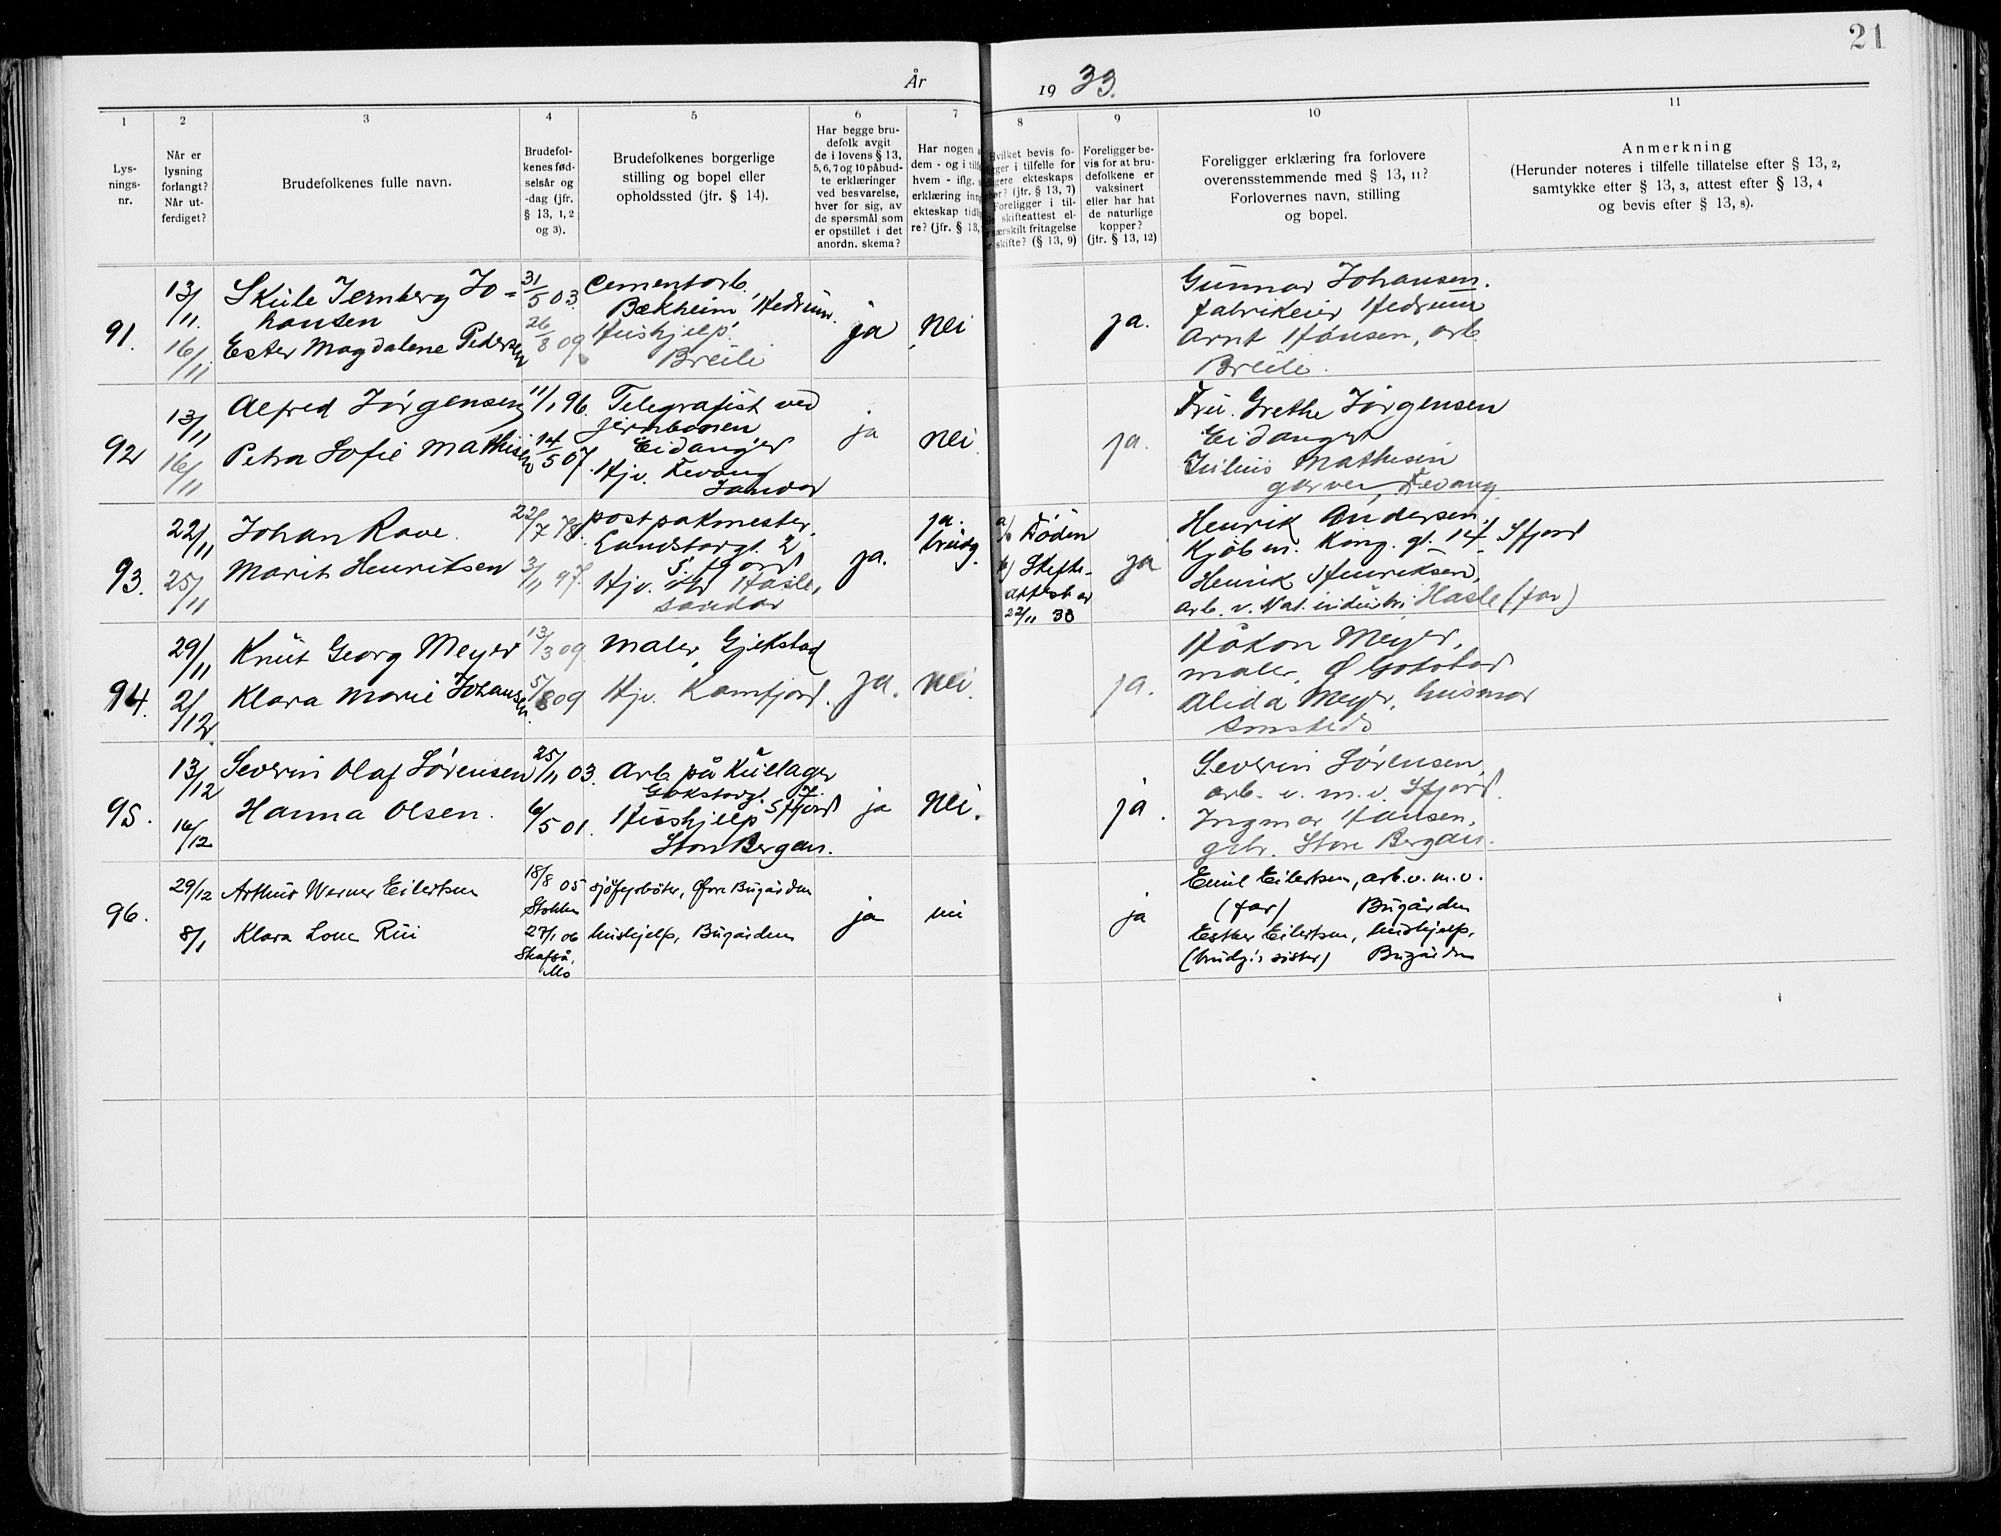 21
År 1933.
1
Lys-
nings-
nr.
2
Når er
lysning
forlangt?
Når ut-
ferdiget?
3
Brudefolkenes fulle navn.
4
Brudefol-
kenes fød-
selsår og
-dag (jfr.
§ 13, 1, 2
og 3).
5
Brudefolkenes borgerlige
stilling og bopel eller
opholdssted (jfr. § 14).
6
Har begge bru-
defolk avgit
de i lovens § 13,
5, 6, 7 og 10 påbud-
te erklæringer
ved besvarelse,
hver for sig, av
de spørsmål som
er opstillet i det
anordn. skema?
7
Har nogen
dem - og i
hvem - iflg.
erklæring
ekteskap
re? (jfr. § 13,
8
bevis fo-
i tilfelle for
ekteskaps
? (jfr. § 13, 7)
Foreligger i til-
skifteattest el-
særskilt fritagelse
skifte? (§ 13, 9)
9
Foreligger be-
vis for at bru-
defolkene er
vaksinert
eller har hat
de naturlige
kopper?
(jfr. § 13, 12)
10
Foreligger erklæring fra forlovere
overensstemmende med § 13, 11?
Forlovernes navn, stilling
og bopel.
11
Anmerkning
(Herunder noteres i tilfelle tillatelse efter § 13, 2,
samtykke efter § 13, 3, attest efter § 13, 4
og bevis efter § 13, 8).
91.
13/11.
16/11
Skule Jernberg Jo-
hansen
Ester Magdalene Pedersen
31/5 03.
26/8 09
Cementarb.
Bækheim, Hedrum.
Hushjelp.
Breili
ja
nei
ja.
Gunnar Johansen.
fabrikeier Hedrum
Arnt Hansen, arb.
Breili.
92
13/11
16/11
Alfred Jørgensen
Petra Sofie Mathisen
11/1 96.
14/5 07.
Telegrafist ved
jernbanen
Eidanger
Hjv. Fevang
Sandar
ja
nei
ja.
Fru. Grethe Jørgensen
Eidanger
Julius Mathisen
garver, Fevang
93.
22/11
25/11
Johan Rove.
Marit Henriksen
22/7 78.
3/11 97.
postpakmester,
Landstadgt. 2
S. fjord
Hjv. Hasle,
Sandar
ja.
ja.
brudg.
a/ Døden
b) Skifte-
attest av
22/11 33
ja
Henrik Andersen
Kjøbm. Kong. gt. 14 Sfjord
Henrik Henriksen,
arb. v. Nat. industri, Hasle (far)
94.
29/11
2/12.
Knut Georg Meyer
Klara Marie Johansen.
13/3 09
5/8 09
maler, Gjekstad
Hjv. Kamfjord.
ja.
nei.
ja.
Håkon Meyer,
maler, Ø Gokstad
Alida Meyer, husmor
smsteds
95.
13/12
16/12
Severin Olaf Sørensen
Hanna Olsen.
25/11 03.
6/5 01.
Arb på Kullager
Gokstadgt. 7.
Sfjord
Hushjelp
Store Bergan.
ja
nei.
ja.
Severin Sørensen,
arb. v. m. v. Sfjord.
Ingmar Hansen,
gbr. Store Bergan.
96.
29/12
8/1
Arthur Werner Eilertsen
Klara Lone Rui
18/8 05
Stokke
27/1 06
Skafså,
Mo
sjøfyrbøter, Øvre Bugården
hushjelp, Bugården
ja
nei
ja
Emil Eilertsen, arb. v. m. v.
(far) Bugården
Esther Eilertsen, hushjelp,
(brudg's søster) Bugården